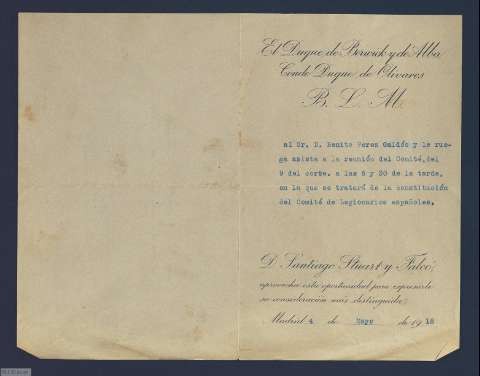 El Duque de Berwick y de Alba
Conde Duque de Olivares
B. L. M.
al Sr. D. Benito Perez Galdós y le rue-
ga asista a la reunión del Comité, del
9 del corte. a las 6 y 30 de la tarde,
en la que se tratará de la constitución
del Comité de Legionarios españoles.
D. Santiago Stuart y Falcó,
aprovecha esta oportunidad para expresarle
su consideración más distinguida.
Madrid 4 de Mayo de 1918